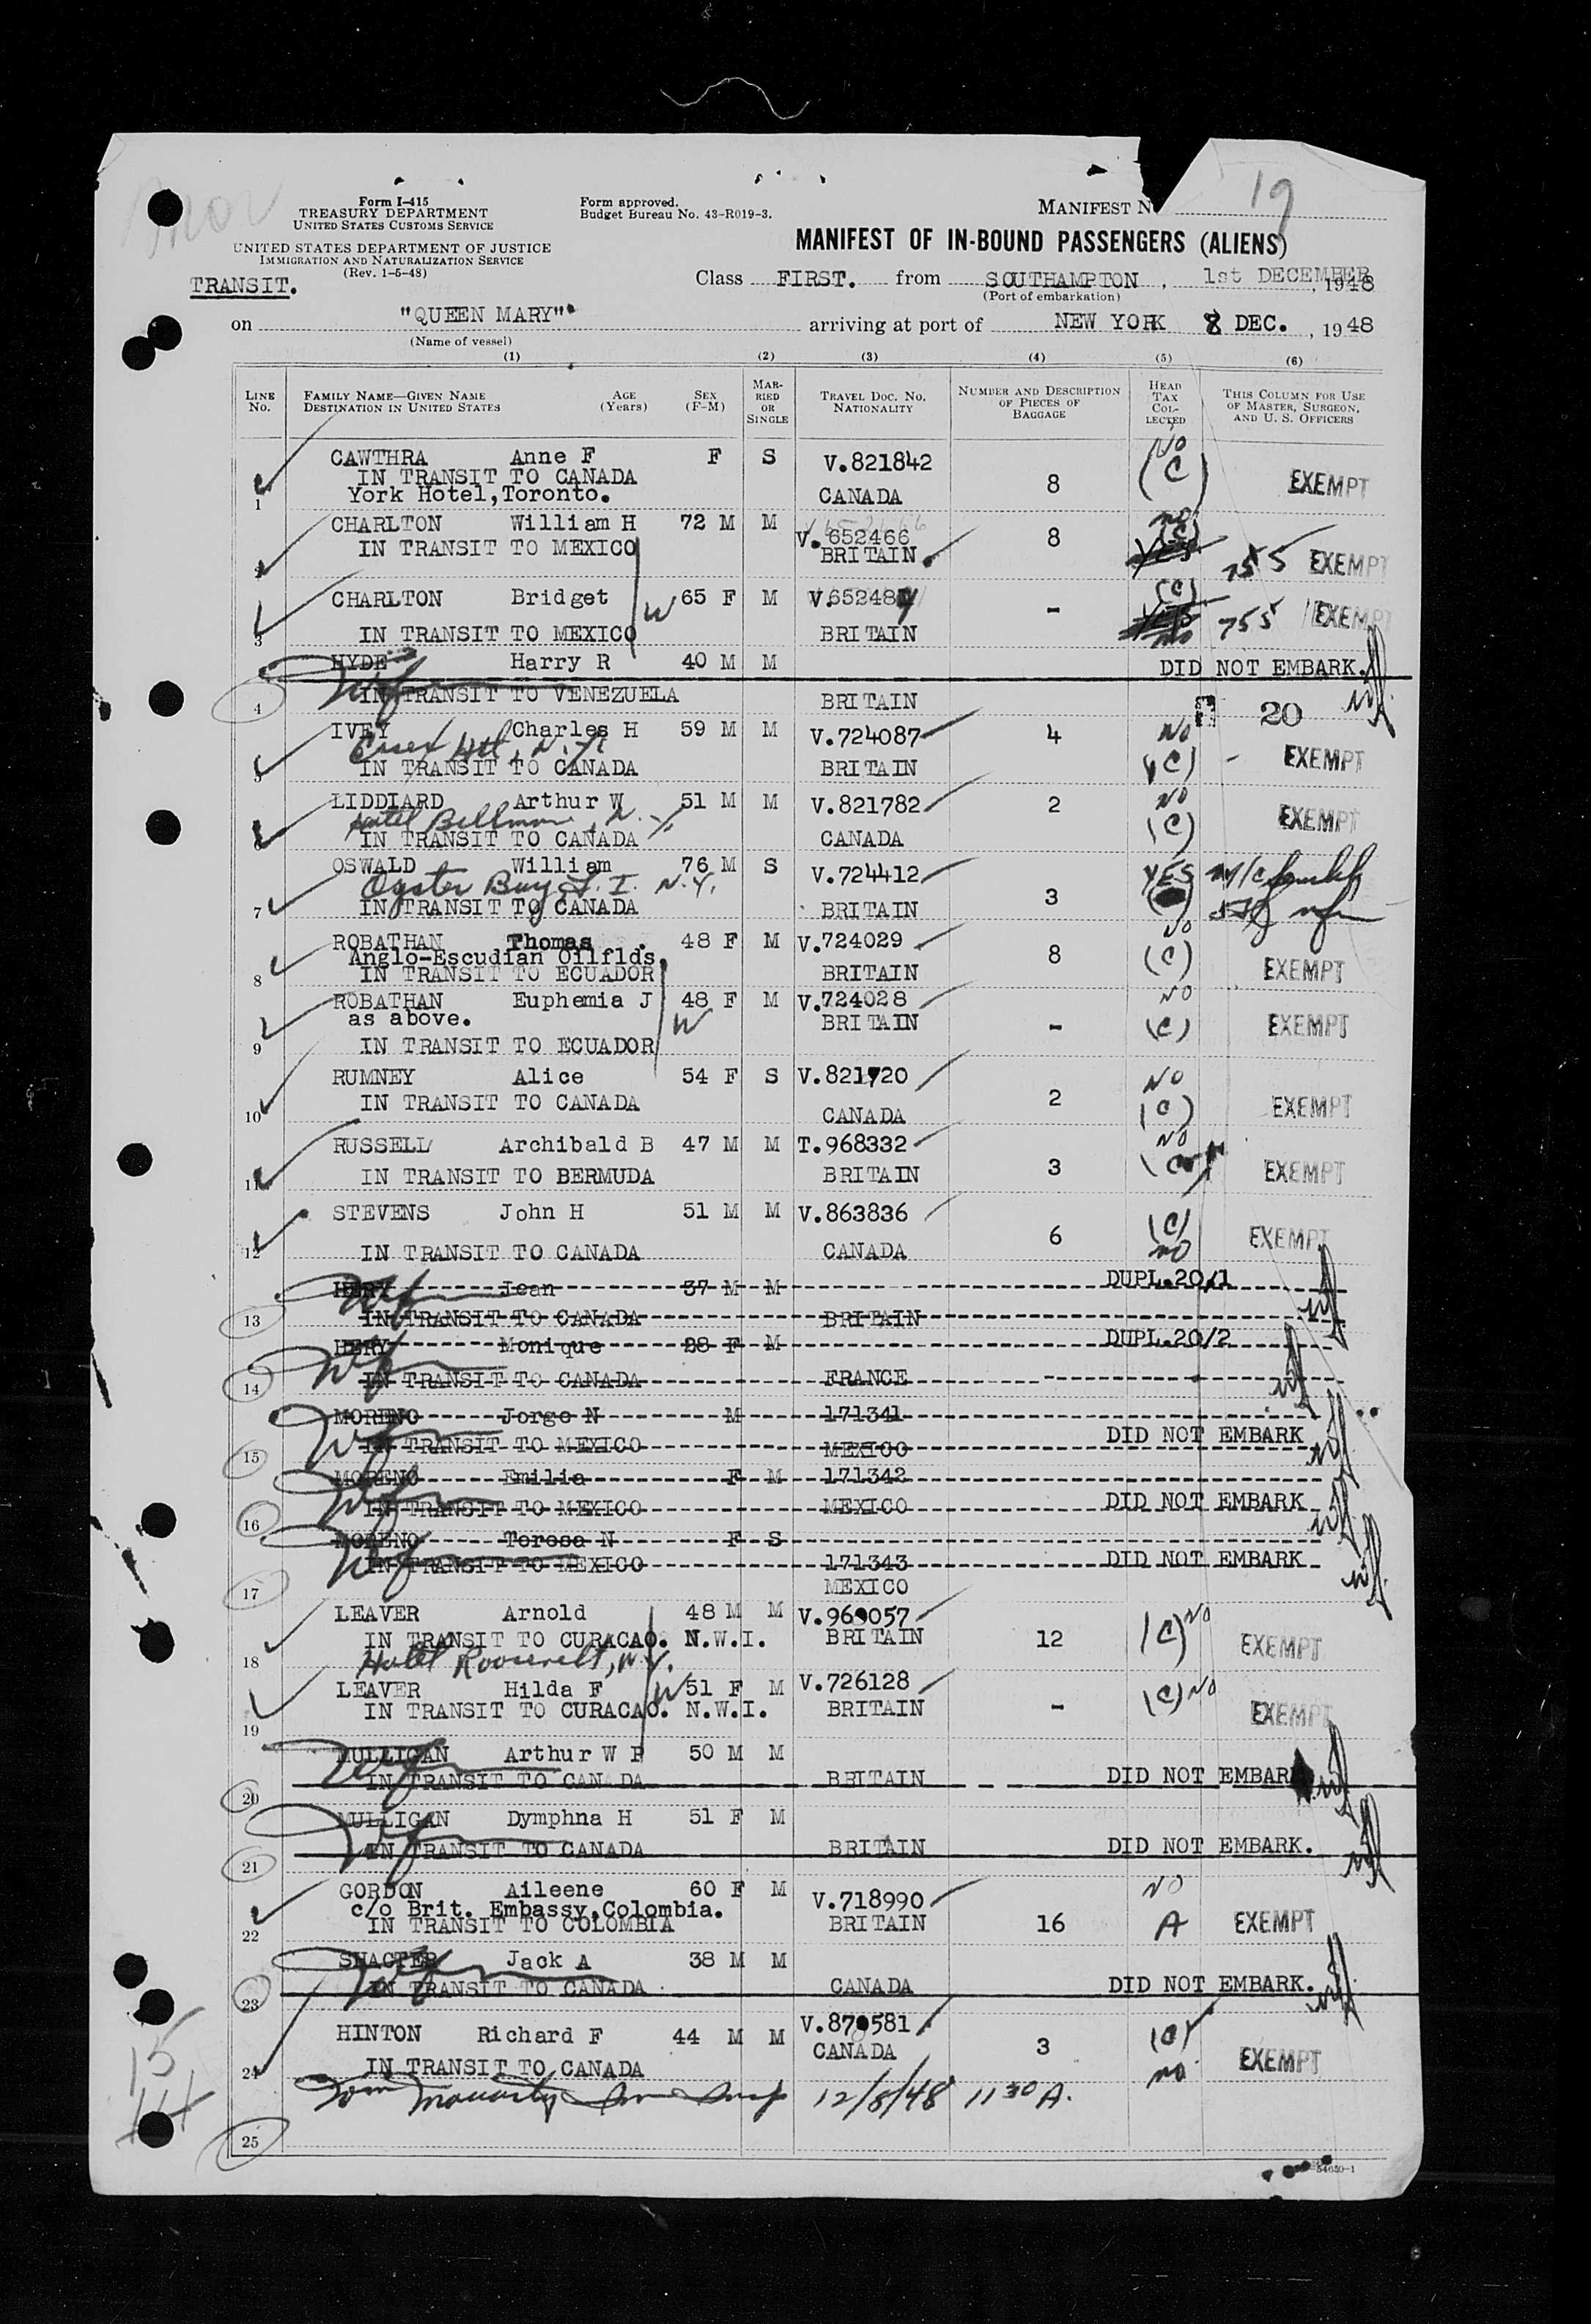 Form I-415
TREASURY DEPARTMENT
UNITED STATES CUSTOMS SERVICE
UNITED STATES DEPARTMENT OF JUSTICE
IMMIGRATION AND NATURALIZATION SERVICE
(Rev. 1-5-48)
TRANSIT.
Form approved.
Budget Bureau No. 43-R019-3.
MANIFEST N 19
MANIFEST OF IN-BOUND PASSENGERS (ALIENS)
Class FIRST. from SOUTHAMPTON, 1st DECEMBER, 1948
(Port of embarkation)
on "QUEEN MARY" arriving at port of NEW YORK 8 DEC., 1948
(Name of vessel)
(1) (2) (3) (4) (5) (6)
LINE No. FAMILY NAME—GIVEN NAME DESTINATION IN UNITED STATES AGE (Years) SEX (F-M) MARRIED OR SINGLE TRAVEL DOC. NO. NATIONALITY NUMBER AND DESCRIPTION OF PIECES OF BAGGAGE HEAD TAX COLLECTED THIS COLUMN FOR USE OF MASTER, SURGEON, AND U. S. OFFICERS
CAWTHRA Anne F F S V.821842 NO
IN TRANSIT TO CANADA 8 (C) EXEMPT
1 York Hotel, Toronto. CANADA
CHARLTON William H 72 M M V.652466 8 NO (C)
2 IN TRANSIT TO MEXICO BRITAIN YES 755 EXEMPT
CHARLTON Bridget W 65 F M V.65248 - (C)
3 IN TRANSIT TO MEXICO BRITAIN YES NO 755 EXEMPT
HYDE Harry R 40 M M DID NOT EMBARK.
4 IN TRANSIT TO VENEZUELA BRITAIN 20
IVEY Charles H 59 M M V.724087 4 NO
Essex Htl, N.Y.
5 IN TRANSIT TO CANADA BRITAIN (C) - EXEMPT
LIDDIARD Arthur W 51 M M V.821782 2 NO
Hotel , N.Y.
6 IN TRANSIT TO CANADA CANADA (C) EXEMPT
OSWALD William 76 M S V.724412 YES
Oyster Bay, L. I. N.Y.
7 IN TRANSIT TO CANADA BRITAIN 3
ROBATHAN Thomas 48 F M V.724029 NO
Anglo-Escudian Oilflds.
8 IN TRANSIT TO ECUADOR BRITAIN 8 (C) EXEMPT
ROBATHAN Euphemia J 48 F M V.724028 NO
as above. W BRITAIN - (C) EXEMPT
9 IN TRANSIT TO ECUADOR
RUMNEY Alice 54 F S V.821720 NO
10 IN TRANSIT TO CANADA CANADA 2 (C) EXEMPT
RUSSELL Archibald B 47 M M T.968332 NO
11 IN TRANSIT TO BERMUDA BRITAIN 3 EXEMPT
STEVENS John H 51 M M V.863836 (C)
12 IN TRANSIT TO CANADA CANADA 6 NO EXEMPT
HERY Jean 37 M M DUPL.20/1
13 IN TRANSIT TO CANADA BRITAIN
HERY Monique 28 F M DUPL.20/2
14 IN TRANSIT TO CANADA FRANCE
MORENO Jorge N M 171341
15 IN TRANSIT TO MEXICO MEXICO DID NOT EMBARK
MORENO Emilia F M 171342
16 IN TRANSIT TO MEXICO MEXICO DID NOT EMBARK
MORENO Teresa N F S
IN TRANSIT TO MEXICO 171343 DID NOT EMBARK
17 MEXICO
LEAVER Arnold 48 M M V.969057
IN TRANSIT TO CURACAO. N.W.I. BRITAIN 12 (C) NO EXEMPT
18 Hotel Roosevelt, N.Y.
LEAVER Hilda F W 51 F M V.726128 (C) NO
19 IN TRANSIT TO CURACAO. N.W.I. BRITAIN - EXEMPT
MULLIGAN Arthur W P 50 M M
20 IN TRANSIT TO CANADA BRITAIN DID NOT EMBARK
MULLIGAN Dymphna H 51 F M
21 IN TRANSIT TO CANADA BRITAIN DID NOT EMBARK.
GORDON Aileene 60 F M V.718990 NO
c/o Brit. Embassy, Colombia.
22 IN TRANSIT TO COLOMBIA BRITAIN 16 A EXEMPT
SHACTER Jack A 38 M M
23 IN TRANSIT TO CANADA CANADA DID NOT EMBARK.
HINTON Richard F 44 M M V.870581 (C)
24 IN TRANSIT TO CANADA CANADA 3 NO EXEMPT
12/8/48 11 30 A.
25
15